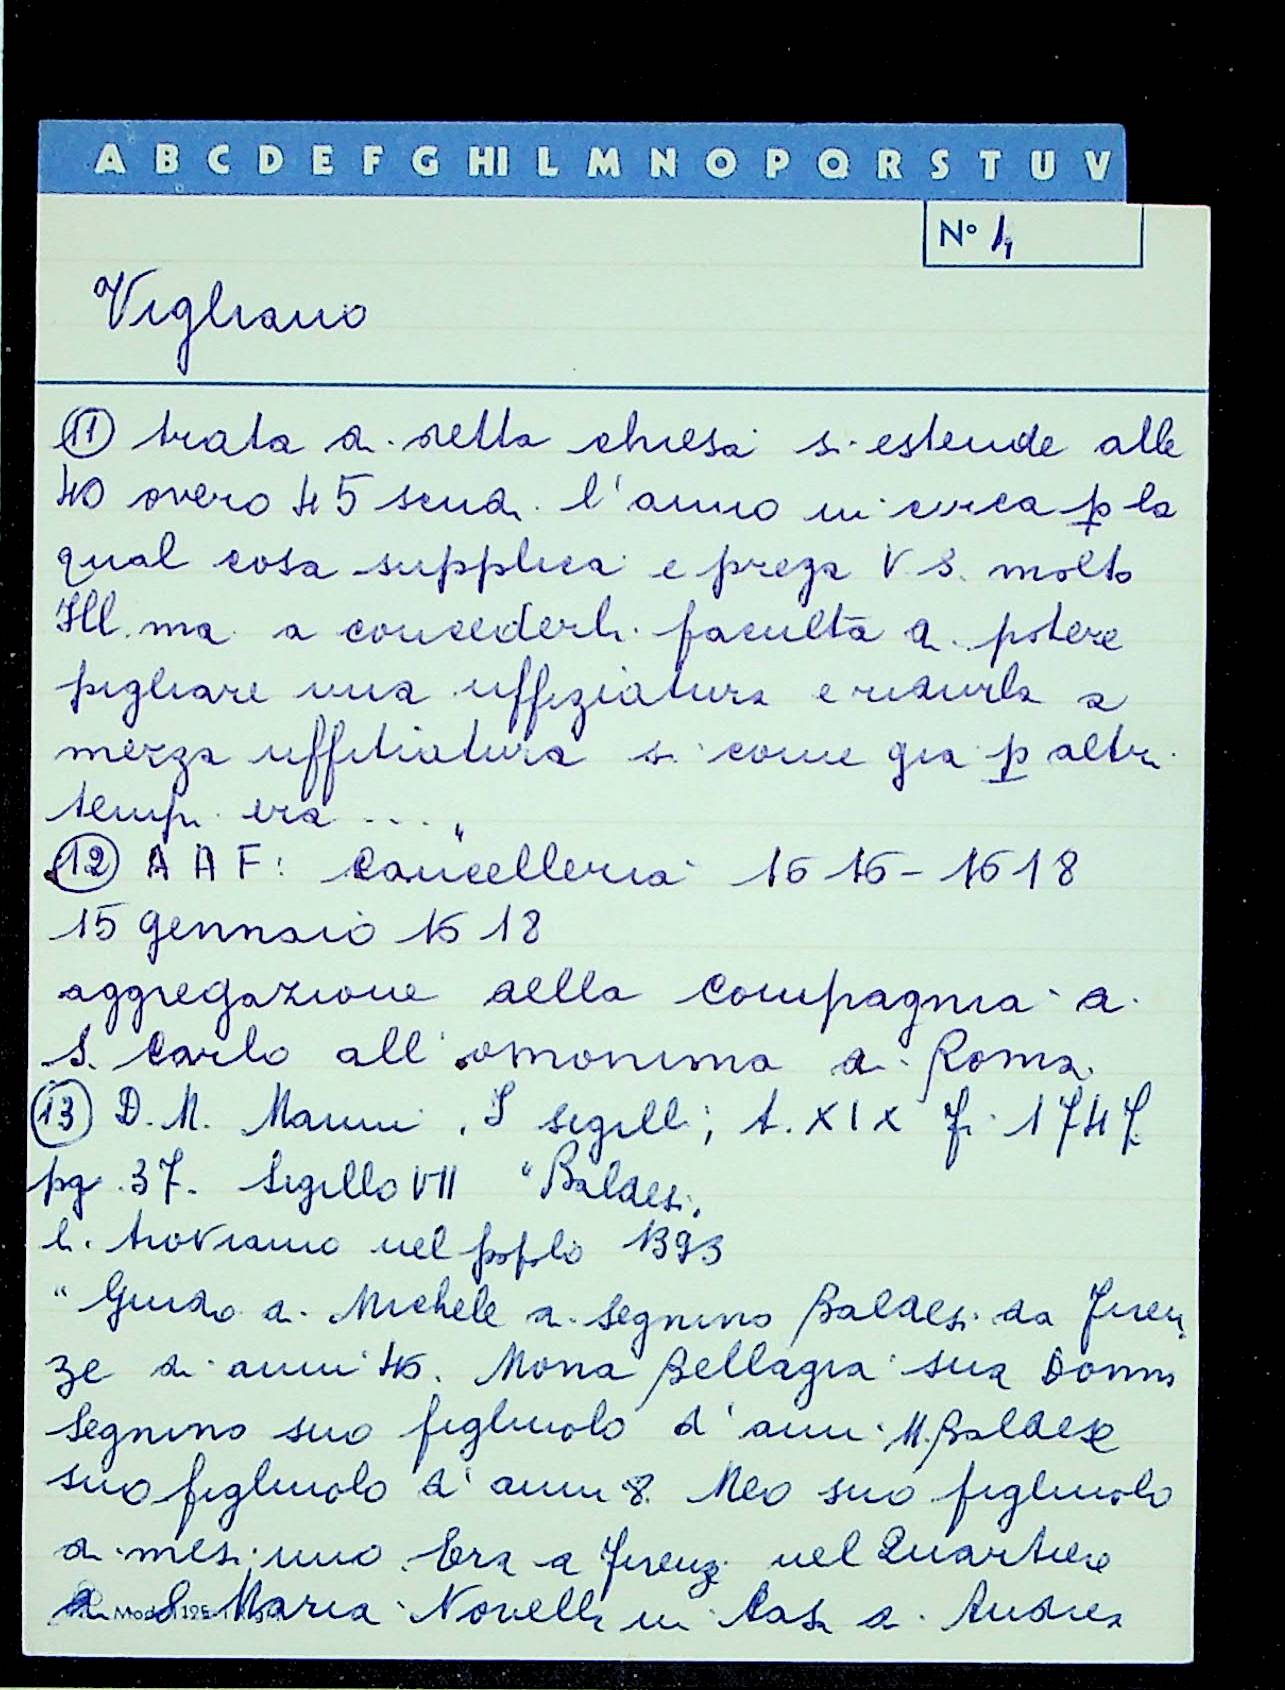 A B C D E F G HI L M N O P Q R S T U V
N° 4
Vigliano
(11) trata di detta chiesa si estende alle
40 overo 45 scudi l'anno in circa p la
qual cosa supplica e prega V.S. molto
Ill.ma a concederli facultà di potere
pigliare una uffiziatura e ridurla a
mezza uffitiatura si come già p altri
tempi era ...."
(12) A A F: Cancelleria 1616-1618
15 gennaio 1618
aggregazione della Compagnia di
S. Carlo all'omonima di Roma.
(13) D.M. Manni, I sigilli, t. XIX Fi 1747
pg. 37. Sigillo VII "Baldesi"
li troviamo nel popolo 1393
"Guido di Michele di Segnino Baldesi da Firen
ze di anni 46. Mona Bellagia sua Donna
Segnino suo figliuolo d'anni 11. Baldese
suo figliuolo d'anni 8. Meo suo figliuolo
di mesi uno. Era a Firenze nel Quartiere
di S. Maria Novella in Casa di Andrea